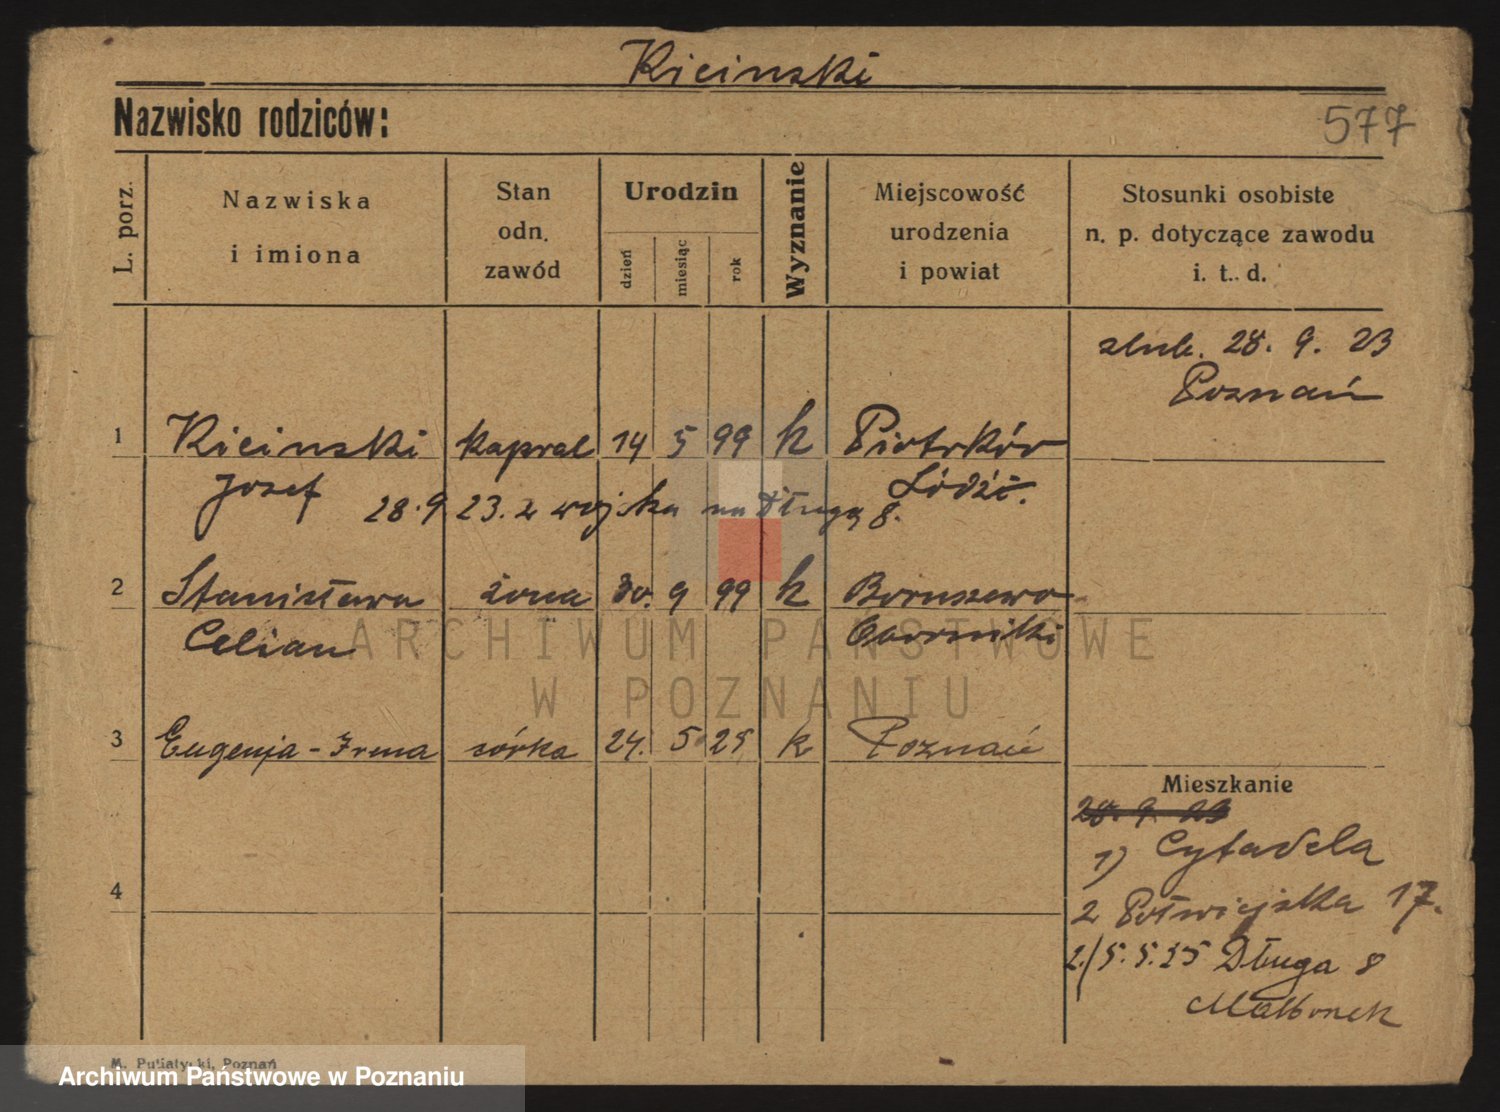 Kicinski
Nazwisko rodziców:
577
L. porz.
Nazwiska
i imiona
Stan
odn.
zawód
Urodzin
dzień
miesiąc
rok
Wyznanie
Miejscowość
urodzenia
i powiat
Stosunki osobiste
n. p. dotyczące zawodu
i. t. d.
28. 9. 23
Poznań
1 Kicinski kapral 14 5 99 k Piotrków
Josef Łódź.
28.9 23. z wojska na Długą 8.
2 Stanisława żona 30. 9 99 k Boruszewo
Celian Oborniki
3 Eugenja-Irena córka 24. 5 25 k Poznań
4
Mieszkanie
28. 9. 23
1) Cytadela
2 Półwiejska 17.
2./5.5.25 Długa 8
M. Putiatycki, Poznań
ARCHIWUM PAŃSTWOWE
W POZNANIU
Archiwum Państwowe w Poznaniu